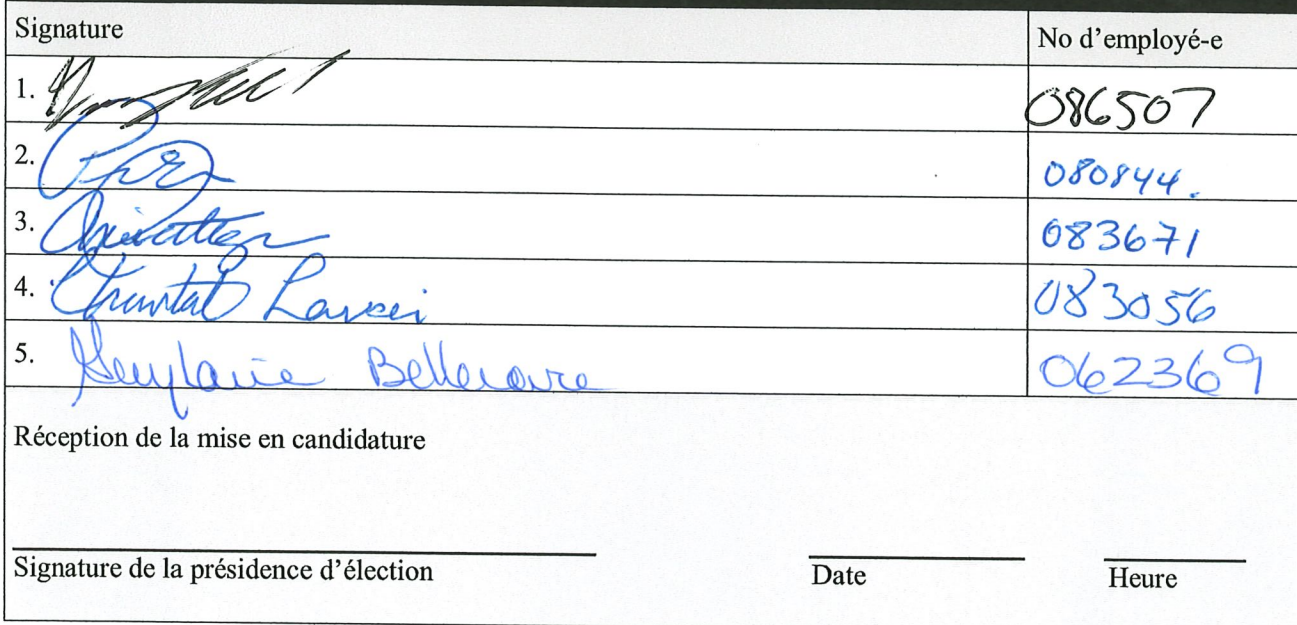 Signature No d'employé-e
1. 086507
2. 080844.
3. 083671
4. Chantal 083056
5. 062369
Réception de la mise en candidature
Signature de la présidence d'élection Date Heure